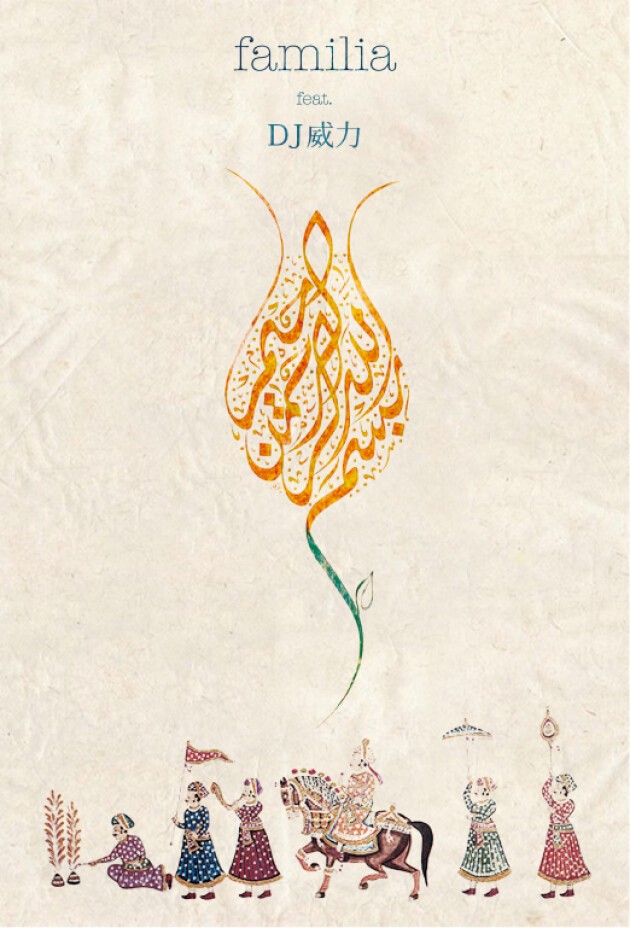 familia
feat.
DJ威力
بسم الله الرحمن الرحيم